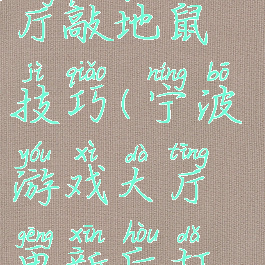 厅敲地鼠
jì qiǎo níng bō
技巧(宁波
yóu xì dà tīng
游戏大厅
gēng xīn hòu dǎ
更新后打